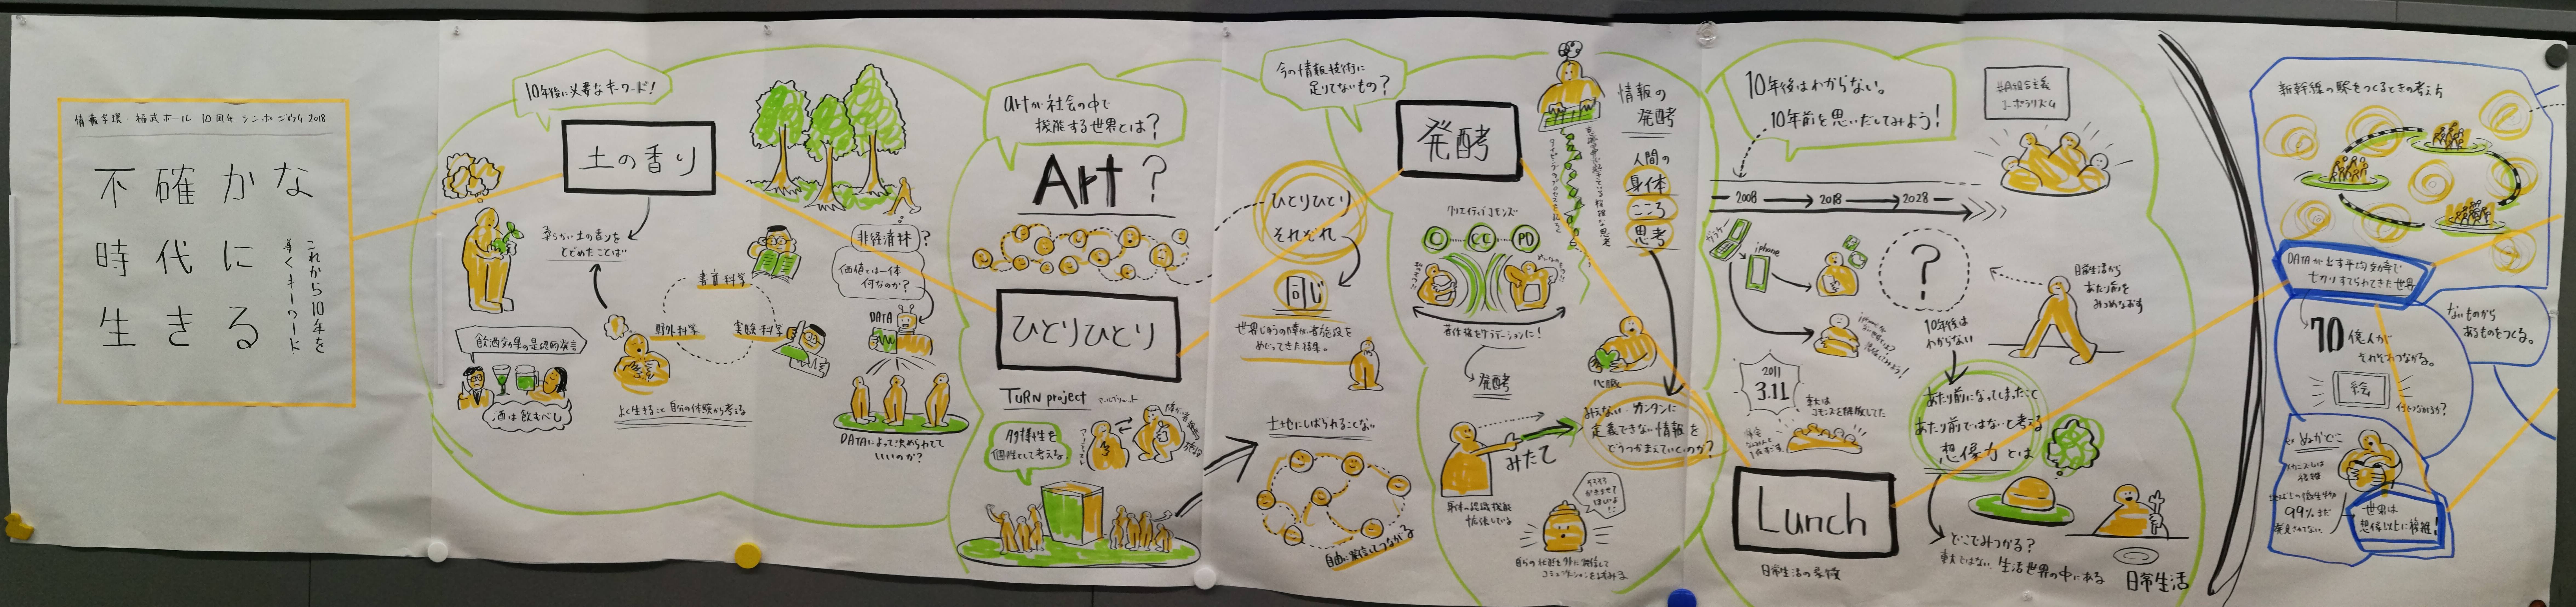 情報学環・福武ホール 10周年シンポジウム 2018
不確かな
時代に
生きる
これから10年を
導くキーワード
10年後に必要なキーワード!
土の香り
柔らかい土の香りを
とどめたことば
書斎科学
野外科学
実験科学
酒は飲むべし
よく生きること 自分の体験から考える
非経済林?
価値とは一体
何なのか?
DATA
DATAによって決められてて
いいのか?
artが社会の中で
機能する世界とは?
Art?
ひとりひとり
TURN project
アーティスト
多様性を
個性として考える
今の情報技術に
足りてないもの?
ひとりひとり
それぞれ
同じ
世界じゅうの障がい者施設を
めぐってきた結果。
土地にしばられることない
自由に発信してつながる
発酵
情報の
発酵
人間の
身体
こころ
思考
クリエイティブコモンズ
C CC PD
著作権をグラデーションに!
発酵
心臓
みえない カンタンに
定義できない情報を
どうつかまえていくのか?
みたて
身体の認識機能
拡張している
そろそろ
かきまぜて
ほしいよ
10年後はわからない。
10年前を思いだしてみよう!
2008 → 2018 → 2028
ガラケー
iphone
?
10年後は
わからない
日常生活から
あたり前を
みつめなおす
2011
3.11
あたり前になってしまったこと
あたり前ではないと考える
想像力とは
Lunch
日常生活の象徴
どこでみつかる?
生活世界の中にある
日常生活
新幹線の駅をつくるときの考え方
DATAが出す平均効率で
切りすてられてきた世界
70億人が
それぞれつながる。
ないものから
あるものをつくる。
絵
ex ぬかどこ
メカニズムは
複雑
99%まだ
発見されてない
世界は
想像以上に複雑!